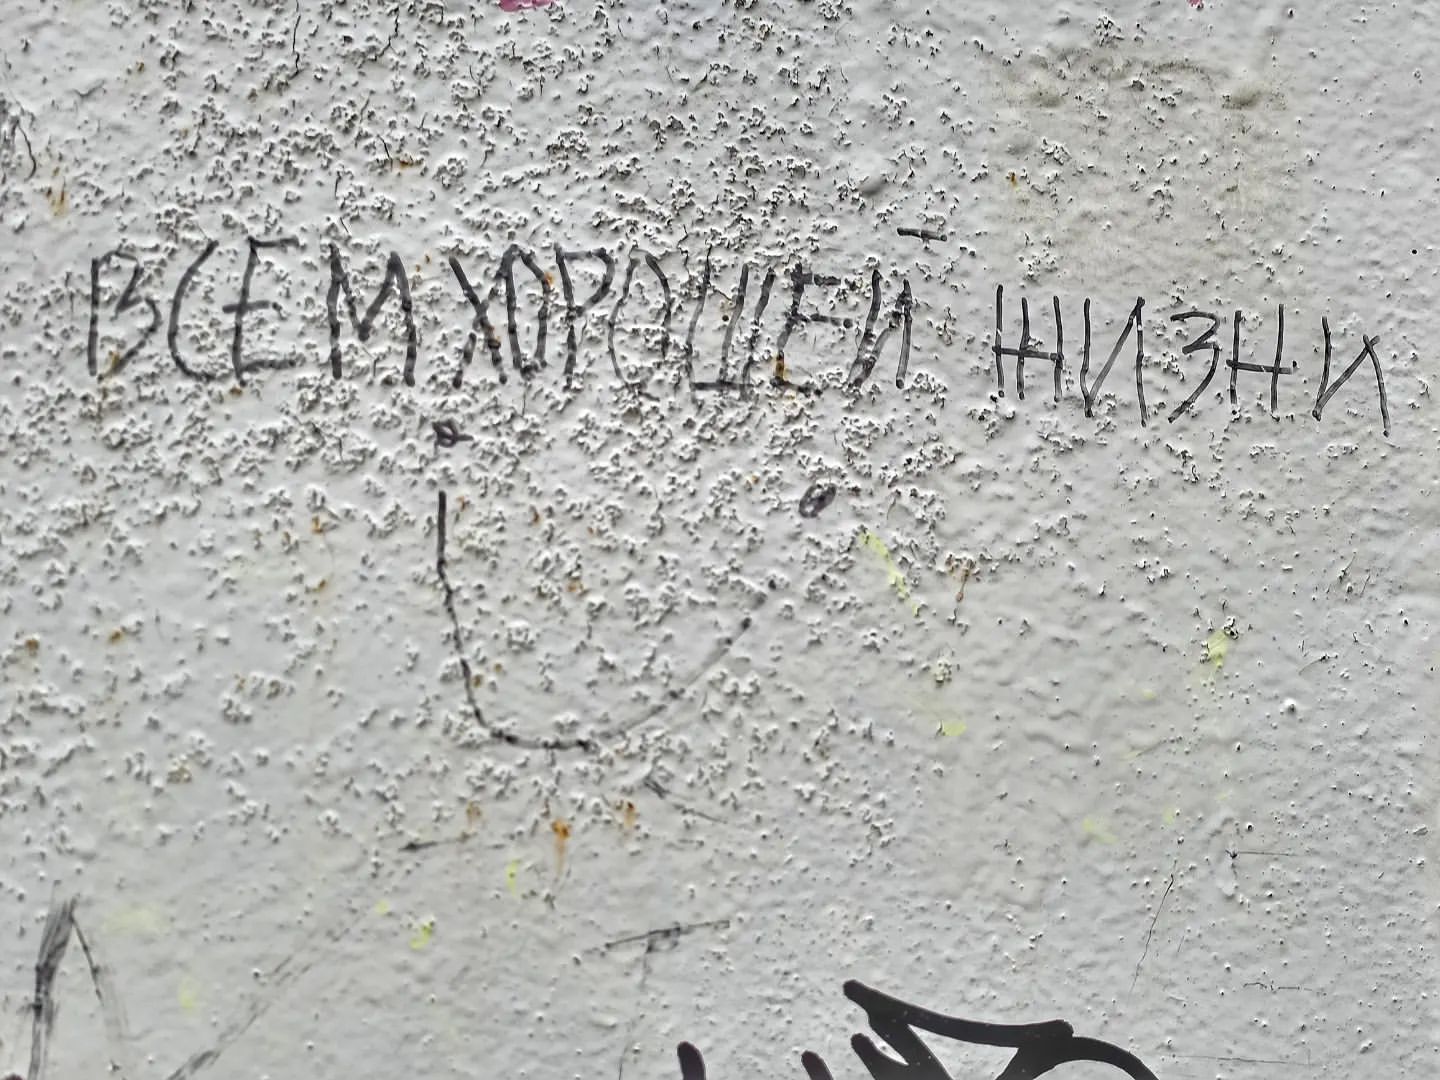 ВСЕМ ХОРОШЕЙ ЖИЗНИ